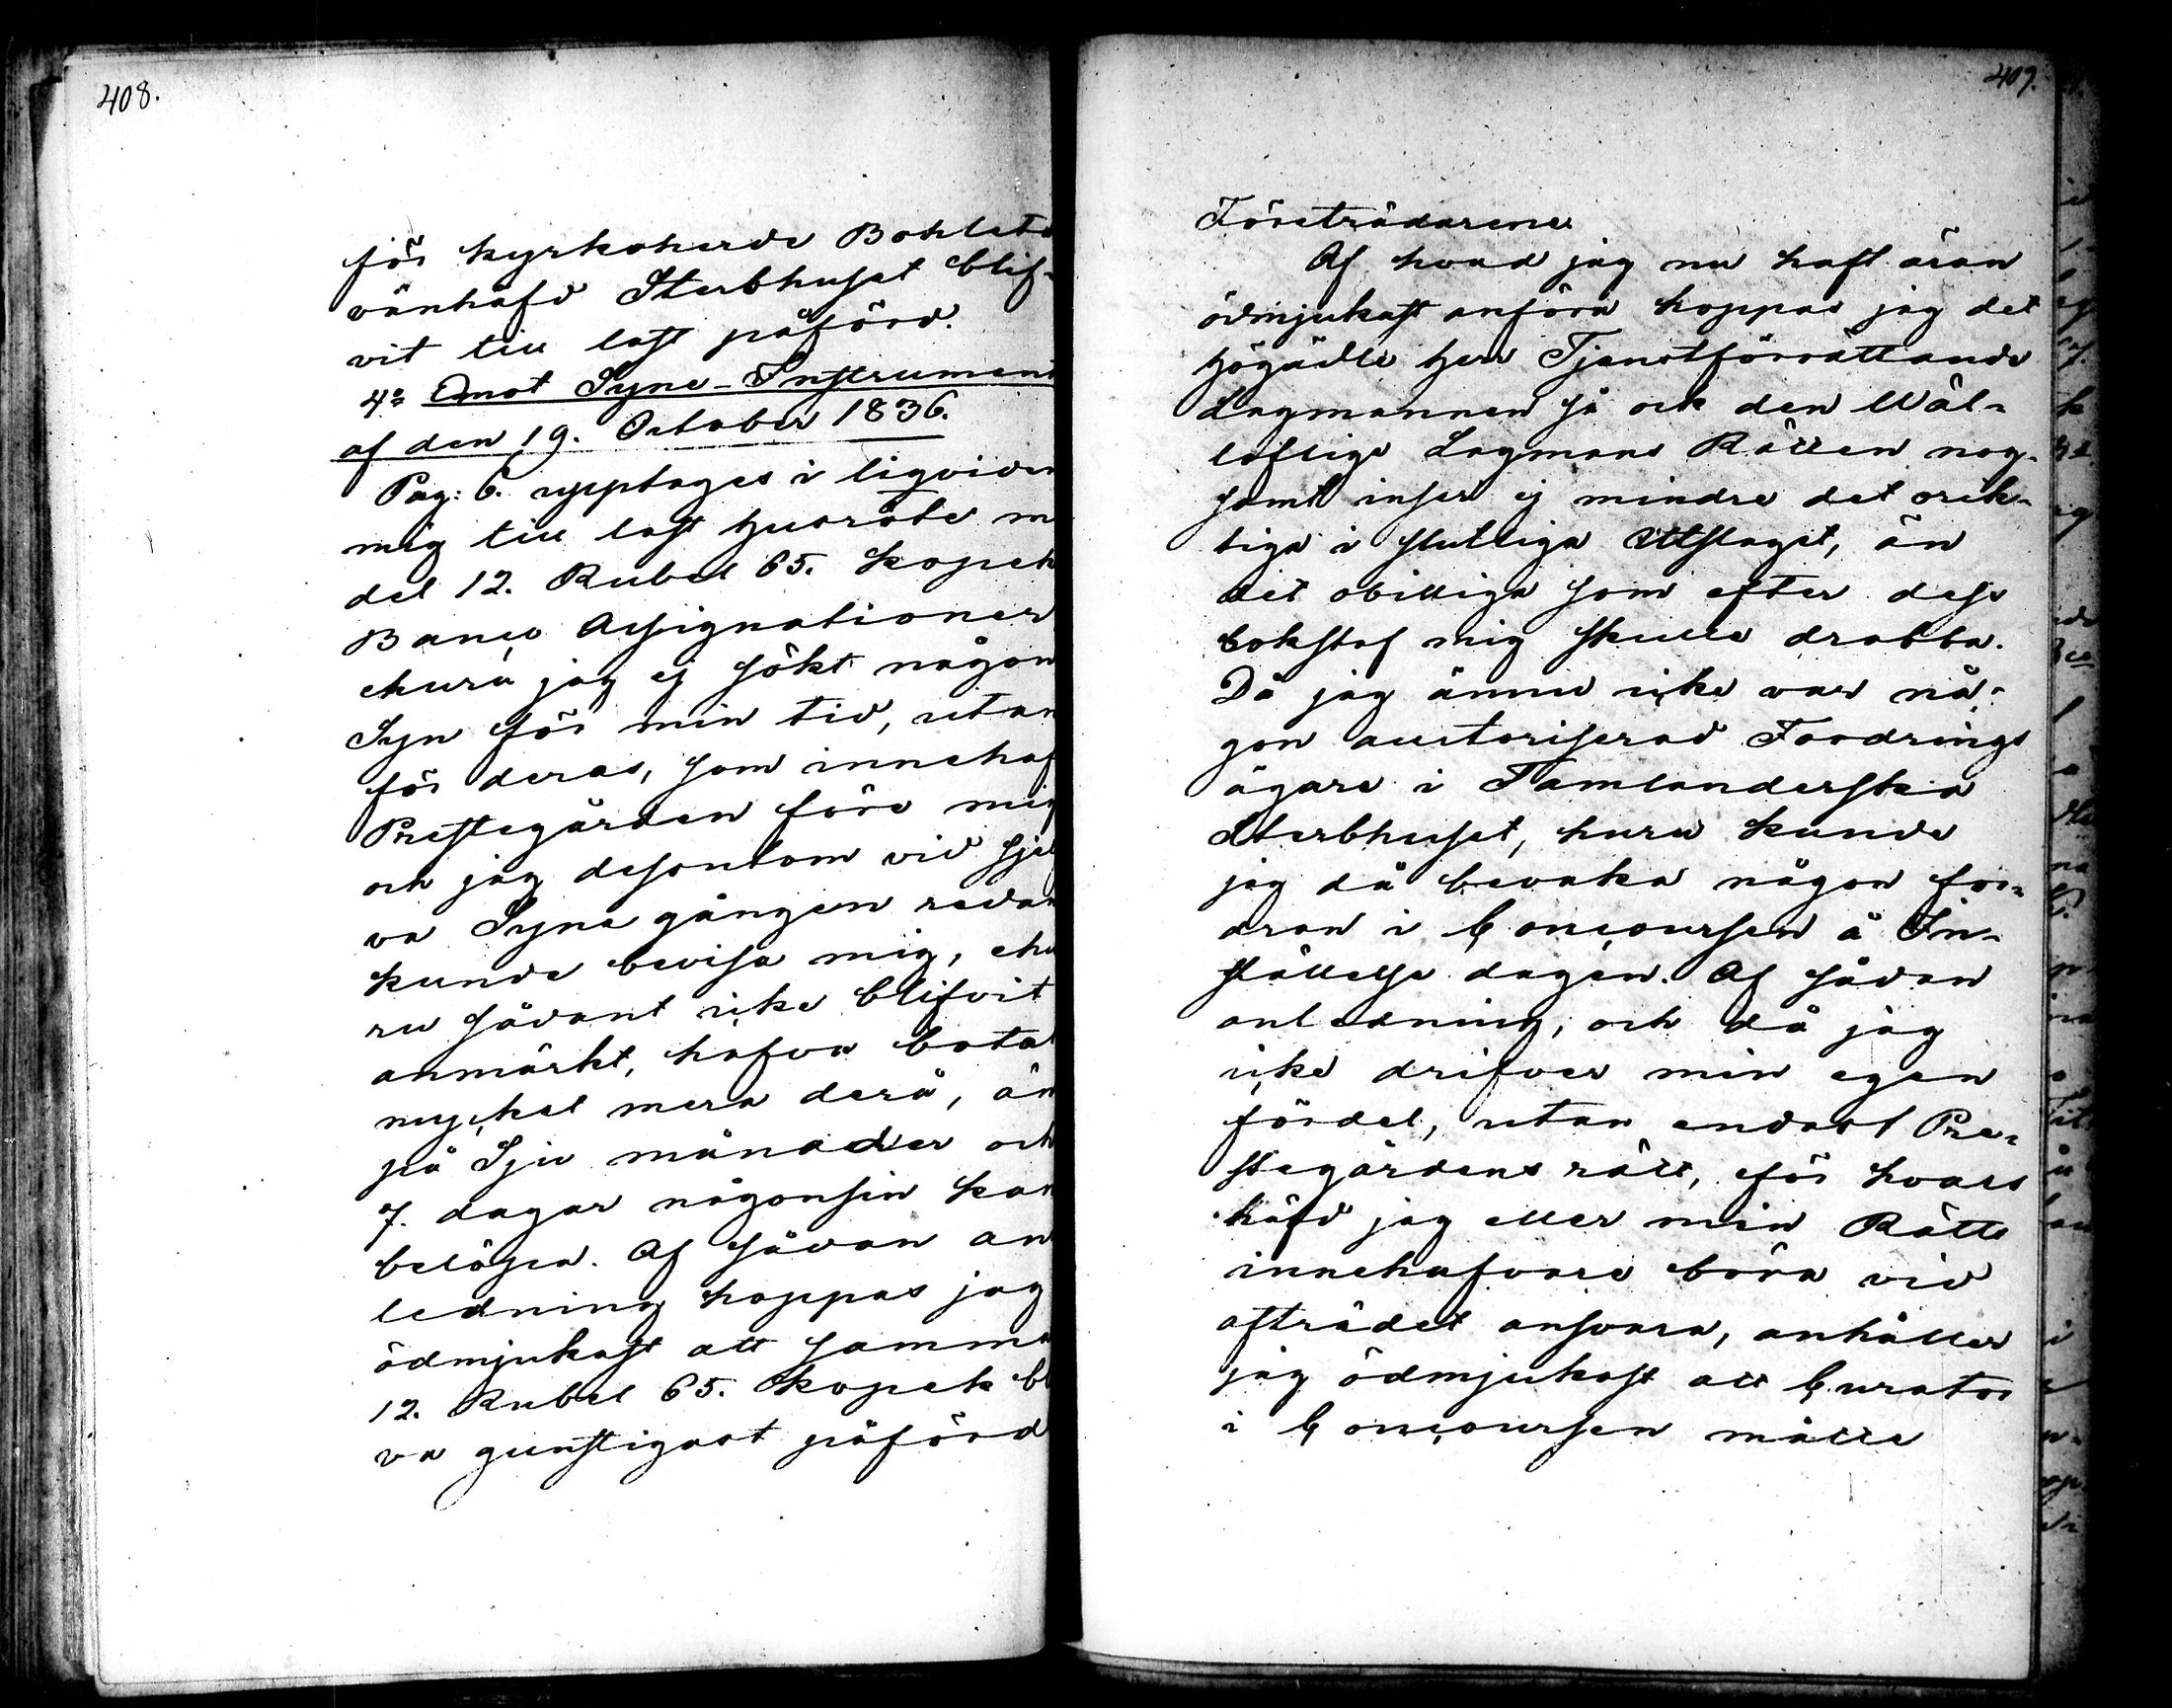 408.
för kyrkoherde Bohlets
vänhäfd Sterbhuset blif-
vit till last påförd.
4:o Emot Syne-Instrument
af den 19. October 1836.
Pag: 6. upptages i liqviden
mig till last husröte m
del 12. Rubel 65. kopek
Banco Assignationer
ehuru jag ej sökt någon
Syn för min tid, utan
för deras, som innehaf
Prestegården före mig
och jag desontom vid sjel
va Syne gången redan
kunde bevisa mig, ehu
ru sådant icke blifvit
anmärkt, hafva botat
myckel mera derå, än
på Sju månader och
7. dagar någonsin kan
belöpa. Af sådan an
ledning hoppas jag
ödmjukast att samma
12. Rubel 65. kopek bl
va gunstigast påförd
409.
Företrädarene
Af hvad jag nu haft äran
ödmjukast anföra hoppas jag det
högädle herr Tjenstförrättande
Lagmannen så ock den Wäl-
loflige Lagmans Rätten nog-
samt inser ej mindre det orik-
tiga i slutliga Utslaget, än
det obilliga som efter dess
bokstaf mig skulle drabba.
Då jag ännu icke var nå-
gon auctoriserad Fordrings
ägare i Tamlanderska
Sterbhuset, huru kunde
jag då bevaka någon for-
dran i Concoursen å In-
ställelse dagen. Af sådan
anledning, och då jag
icke drifver min egen
fördel, utan endast Pre-
stegårdens rätt, för hvars
häfd jag eller min Rätts
innehafvare böra vid
afträdet ansvara, anhåller
jag ödmjukast att Curator
i Concoursen måtte